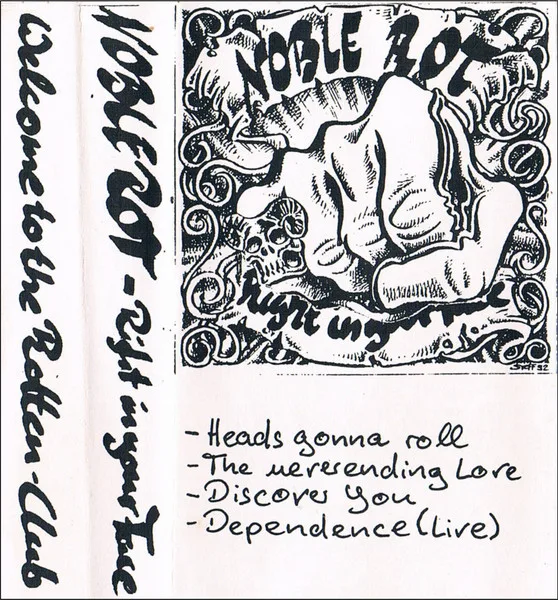 Welcome to the Rotten-Club
NOBLE ROT - Right in your Face
NOBLE ROT
Right in your Face
- Heads gonna roll
- The neverending Love
- Discover You
- Dependence (Live)